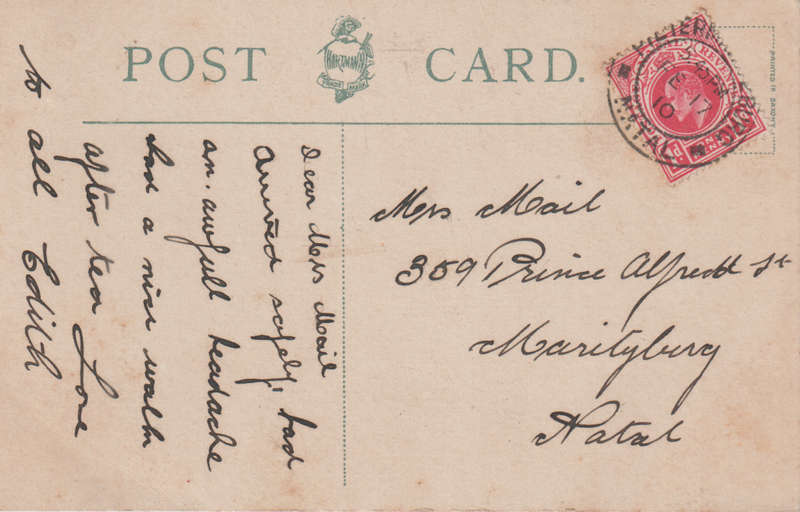 POST CARD.
HARTMANN
PRINTED IN SAXONY
REVENUE
NATAL
Dear Mrs Mail
arrived safely, had
an awfull headache
had a nice walk
after tea Love
to all Edith
Mrs Mail
359 Prince Alfred St
Maritzburg
Natal